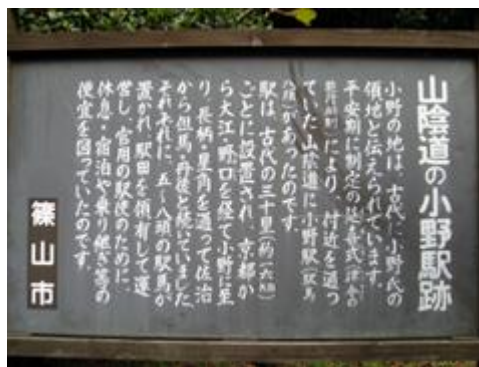 山陰道の小野駅跡
小野の地は、古代に小野氏の
領地と伝えられています。
平安期に制定の延喜式(律令の
により、付近を通っ
ていた山陰道に小野駅(駅馬
があったのです。
駅は、古代の三十里(約一六㎞)
ごとに設置され、京都か
ら大江・野口を経て小野に至
り、長柄・星角を通って佐治
から但馬・丹後と続いていました。
それぞれに、五〜八頭の駅馬が
置かれ、駅田を領有して運
営し、官用の駅使のために、
休息・宿泊や乗り継ぎ等の
便宜を図っていたのです。
篠山市